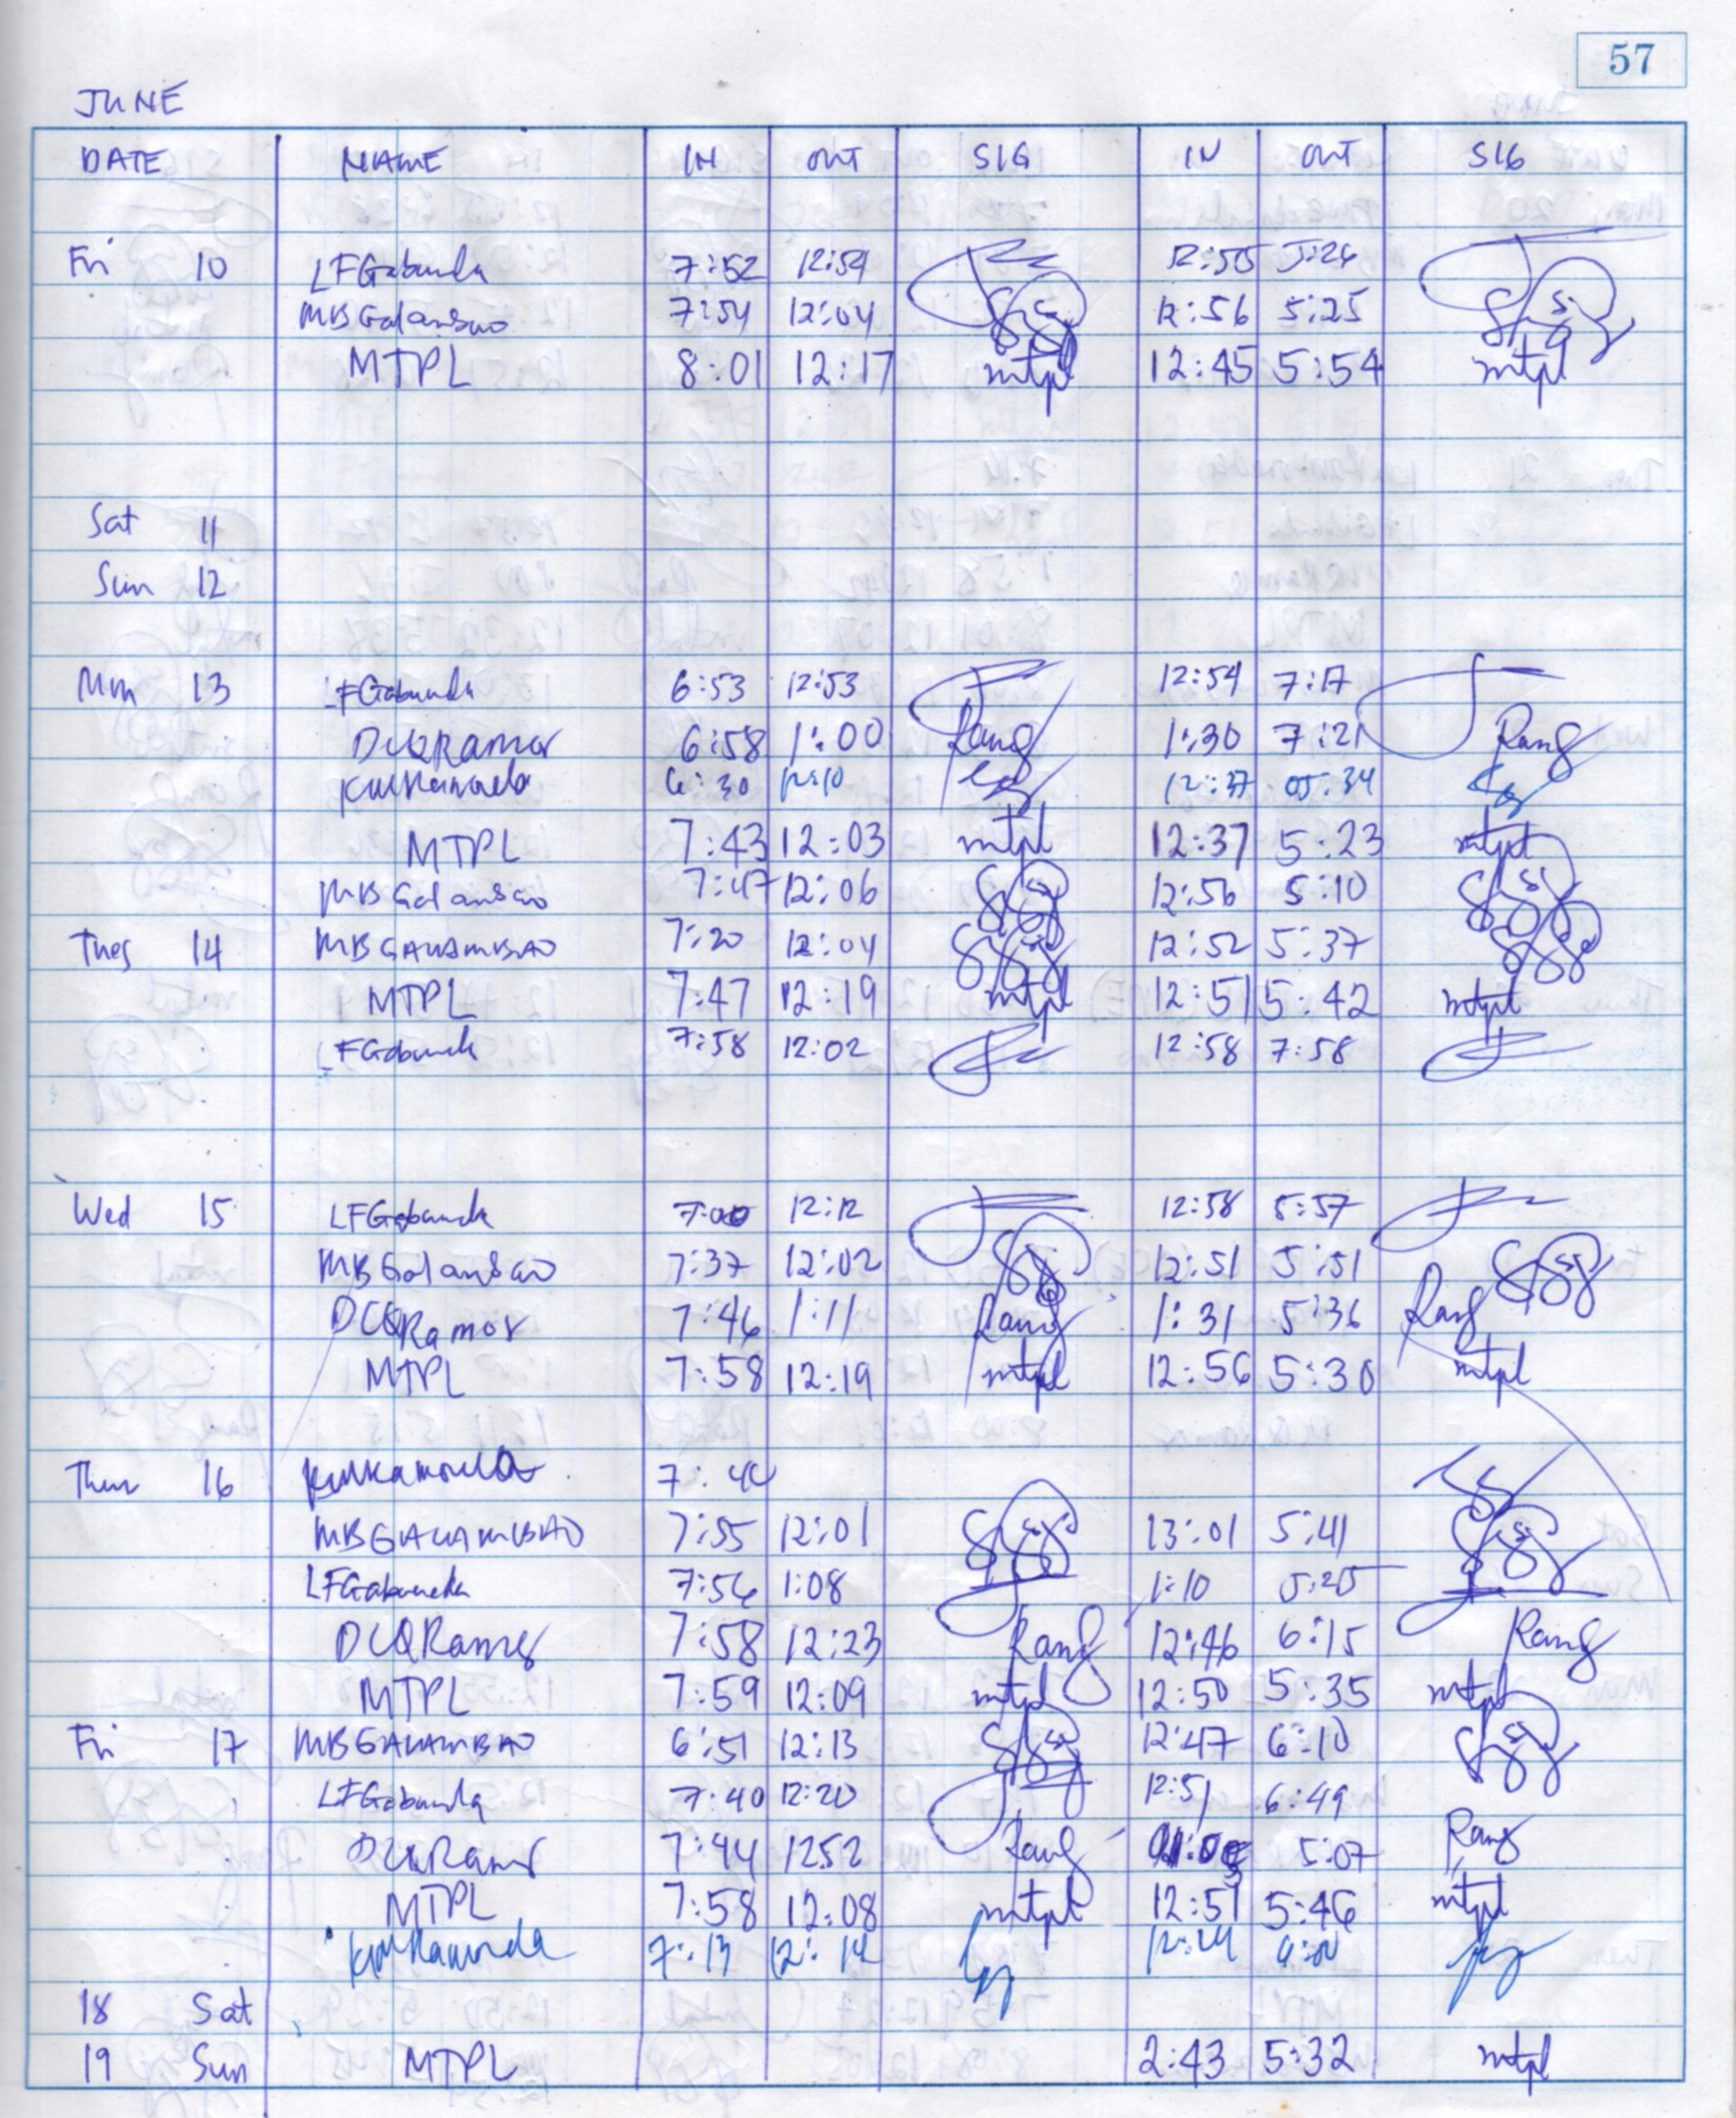 57
JUNE
DATE NAME IN OUT SIG IN OUT SIG
Fri 10 LFGabunda 7:52 12:54 12:55 5:26
MBGalansao 7:54 12:04 12:56 5:25
MTPL 8:01 12:17 mtpl 12:45 5:54 mtpl
Sat 11
Sun 12
Mon 13 LFGabunda 6:53 12:53 12:54 7:17
DCQRamos 6:58 1:00 Ramos 1:30 7:21 Ramos
6:30 12:10 12:37 05:34
MTPL 7:43 12:03 mtpl 12:37 5:23 mtpl
MBGalansao 7:47 12:06 12:56 5:10
Tues 14 7:20 12:04 12:52 5:37
MTPL 7:47 12:19 mtpl 12:51 5:42 mtpl
LFGabunda 7:58 12:02 12:58 7:58
Wed 15 LFGabunda 7:00 12:12 12:58 5:57
MBGalansao 7:37 12:02 12:51 5:51
DCQRamos 7:46 1:11 Ramos 1:31 5:36 Ramos
MTPL 7:58 12:19 mtpl 12:56 5:30 mtpl
Thur 16 7:
7:55 12:01 13:01 5:41
LFGabunda 7:56 1:08 1:10 5:25
DCQRamos 7:58 12:23 Ramos 12:46 6:15 Ramos
MTPL 7:59 12:09 mtpl 12:50 5:35 mtpl
Fri 17 6:51 12:13 12:47 6:10
LFGabunda 7:40 12:20 12:51 6:49
DCQRamos 7:44 1252 Ramos 5:07 Ramos
MTPL 7:58 12:08 mtpl 12:51 5:46 mtpl
7:13 12:14
18 Sat
19 Sun MTPL 2:43 5:32 mtpl